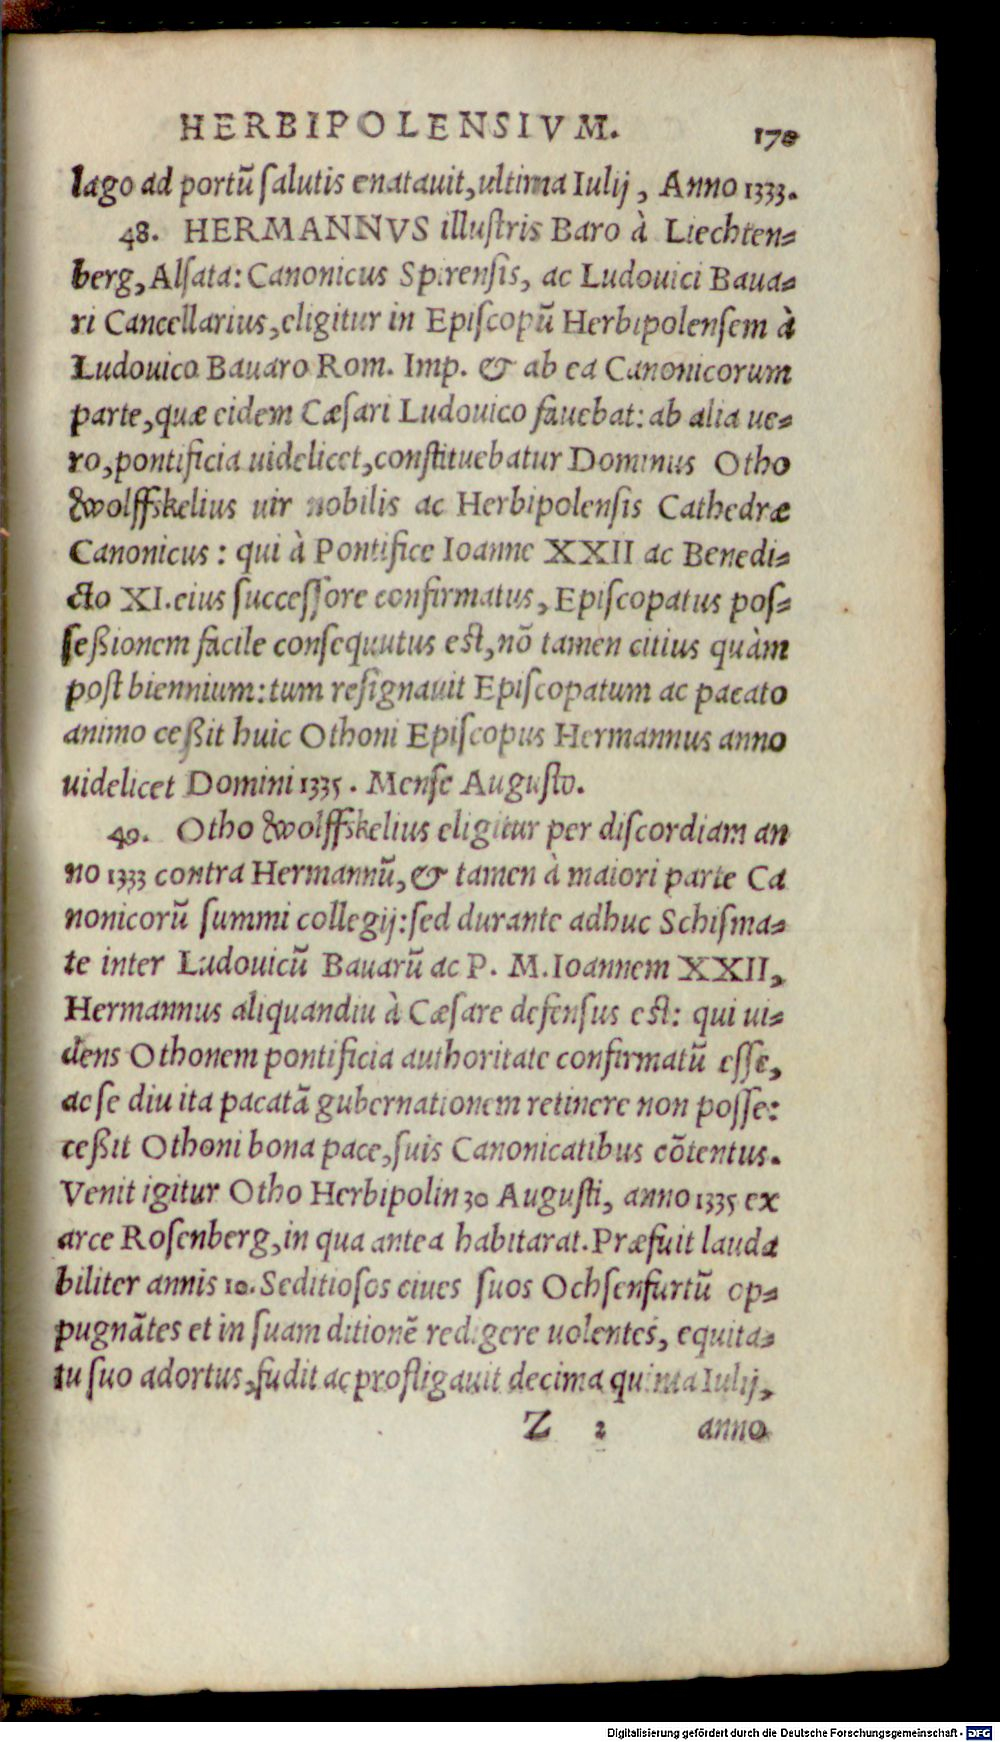 HERBIPOLENSIVM. 170
lago ad portū ſalutis enatauit, ultima Iulij, Anno 1333.
48. HERMANNVS illuſtris Baro à Liechten⸗
berg, Alſata: Canonicus Spirenſis, ac Ludouici Baua⸗
ri Cancellarius, eligitur in Epiſcopū Herbipolenſem à
Ludouico Bauaro Rom. Imp. & ab ea Canonicorum
parte, quæ eidem Cæſari Ludouico fauebat: ab alia ue⸗
ro, pontificia uidelicet, conſtituebatur Dominus Otho
Wolffſkelius uir nobilis ac Herbipolenſis Cathedræ
Canonicus: qui à Pontifice Ioanne XXII ac Benedi⸗
cto XI. eius ſucceſſore confirmatus, Epiſcopatus poſ⸗
ſeßionem facile conſequutus eſt, nō tamen citius quàm
poſt biennium: tum reſignauit Epiſcopatum ac pacato
animo ceßit huic Othoni Epiſcopus Hermannus anno
uidelicet Domini 1335. Menſe Auguſto.
49. Otho Wolffſkelius eligitur per diſcordiam an
no 1333 contra Hermannū, & tamen à maiori parte Ca
nonicorū ſummi collegij: ſed durante adhuc Schiſma⸗
te inter Ludouicū Bauarū ac P. M. Ioannem XXII,
Hermannus aliquandiu à Cæſare defenſus eſt: qui ui⸗
dens Othonem pontificia authoritate confirmatū eſſe,
ac ſe diu ita pacatā gubernationem retinere non poſſe:
ceßit Othoni bona pace, ſuis Canonicatibus cōtentus.
Venit igitur Otho Herbipolin 30 Auguſti, anno 1335 ex
arce Roſenberg, in qua antea habitarat. Præfuit lauda
biliter annis 10. Seditioſos ciues ſuos Ochſenfurtū op⸗
pugnātes et in ſuam ditionē redigere uolentes, equita⸗
tu ſuo adortus, fudit ac profligauit decima quinta Iulij,
Z 2 anno
Digitalisierung gefördert durch die Deutsche Forschungsgemeinschaft - DFG